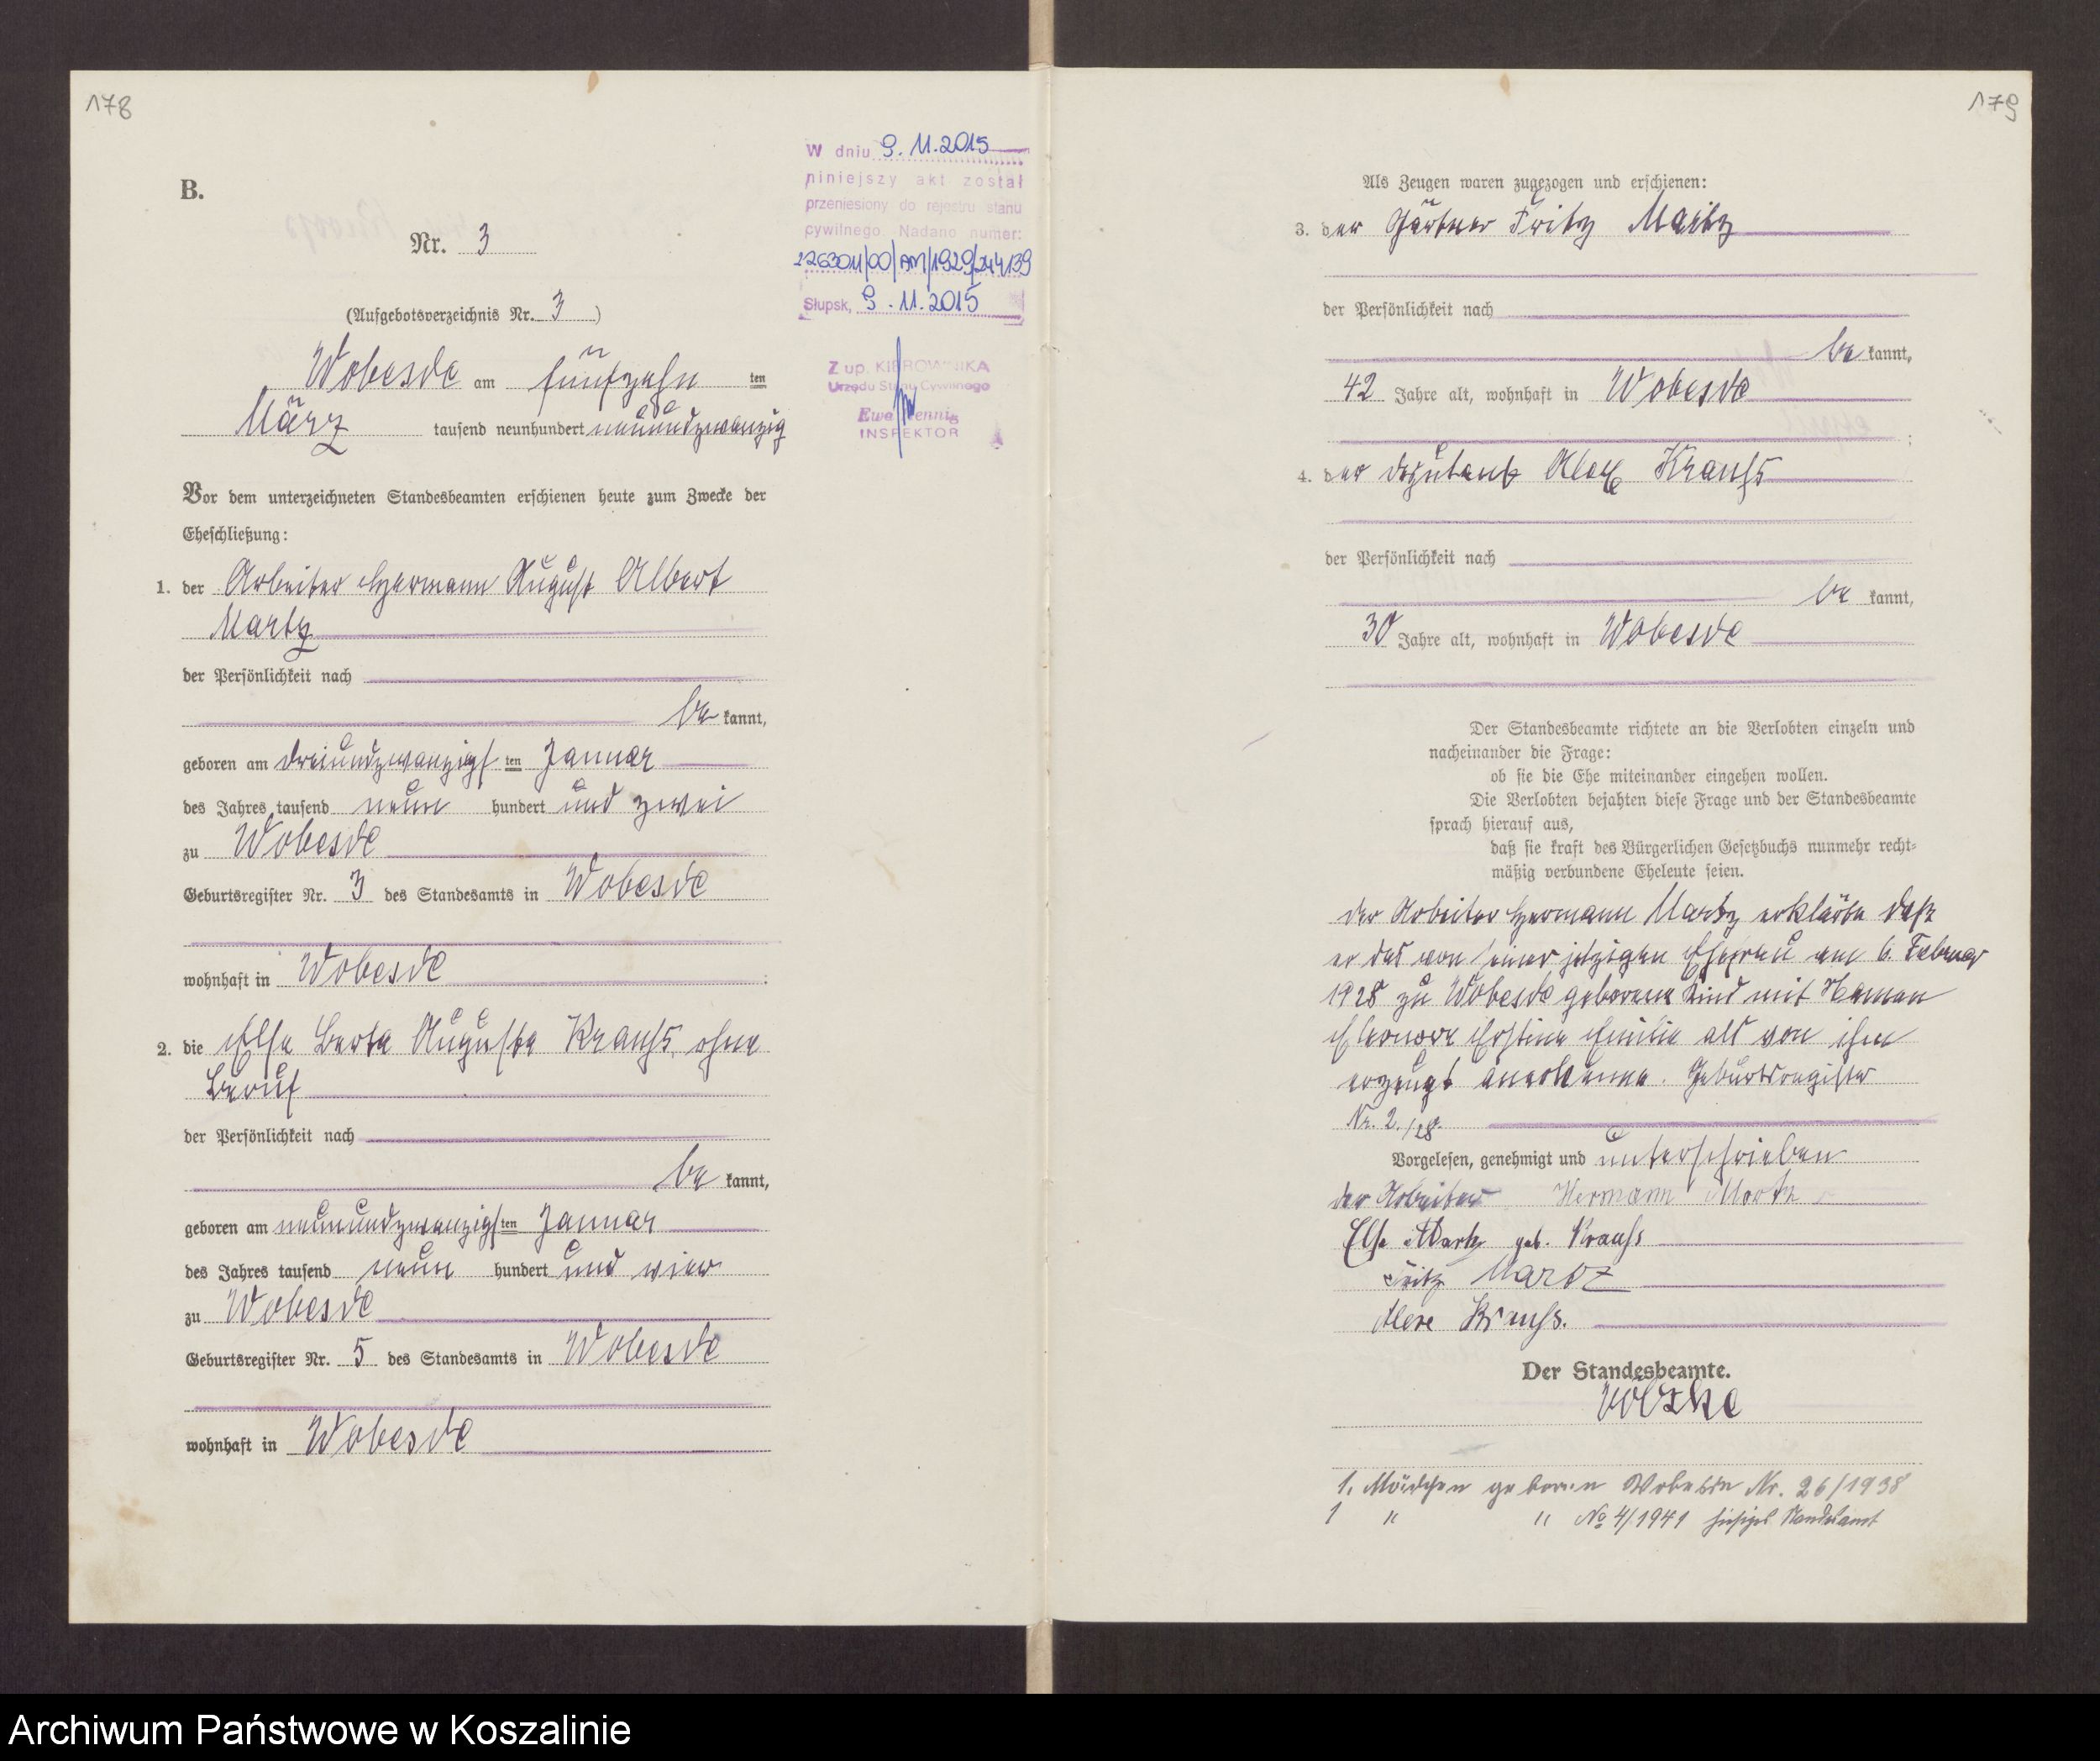 178
B.
Nr. 3
(Aufgebotsverzeichnis Nr. 3)
Wobesde am fünfzehn ten
März tausend neunhundert neunundzwanzig
Vor dem unterzeichneten Standesbeamten erschienen heute zum Zwecke der
Eheschließung:
1. der Arbeiter Hermann August Albert
Martz
der Persönlichkeit nach
be kannt,
geboren am dreiundzwanzigs ten Januar
des Jahres tausend neun hundert und zwei
zu Wobesde
Geburtsregister Nr. 3 des Standesamts in Wobesde
wohnhaft in Wobesde ;
2. die Else Berta Auguste Krauß, ohne
Beruf
der Persönlichkeit nach
be kannt,
geboren am neunundzwanzigs ten Januar
des Jahres tausend neun hundert und vier
zu Wobesde
Geburtsregister Nr. 5 des Standesamts in Wobesde
wohnhaft in Wobesde
W dniu 9.11.2015
niniejszy akt został
przeniesiony do rejestru stanu
cywilnego. Nadano numer:
2263011/00/AM/1929/244139
Słupsk, 9.11.2015
Z up. KIEROWNIKA
Urzędu Stanu Cywilnego
Ewa
INSPEKTOR
179
Als Zeugen waren zugezogen und erschienen:
3. der Gärtner Fritz Martz
der Persönlichkeit nach
be kannt,
42 Jahre alt, wohnhaft in Wobesde
;
4. der Deputant Krauß
der Persönlichkeit nach
be kannt,
30 Jahre alt, wohnhaft in Wobesde
Der Standesbeamte richtete an die Verlobten einzeln und
nacheinander die Frage:
ob sie die Ehe miteinander eingehen wollen.
Die Verlobten bejahten diese Frage und der Standesbeamte
sprach hierauf aus,
daß sie kraft des Bürgerlichen Gesetzbuchs nunmehr recht-
mäßig verbundene Eheleute seien.
der Arbeiter Hermann Martz erklärte daß
er das von seiner jetzigen Ehefrau am 6. Februar
1928 zu Wobesde geborene Kind mit Namen
Eleonore Emilie als von ihm
erzeugt anerkenne. Geburtsregister
Nr. 2./28.
Vorgelesen, genehmigt und unterschrieben
der Arbeiter Hermann Martz
Else Martz geb. Krauß
Fritz Martz
Krauß.
Der Standesbeamte.
Völzke
1. Mädchen geboren Wobesde Nr. 26/1938
1 " " No 4/1941 hiesiges Standesamt
Archiwum Państwowe w Koszalinie